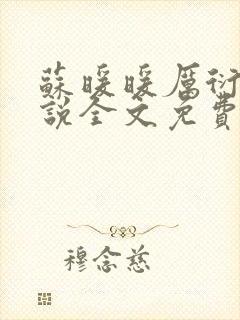 蘇暖暖厲衍
說全文免費
穆念慈